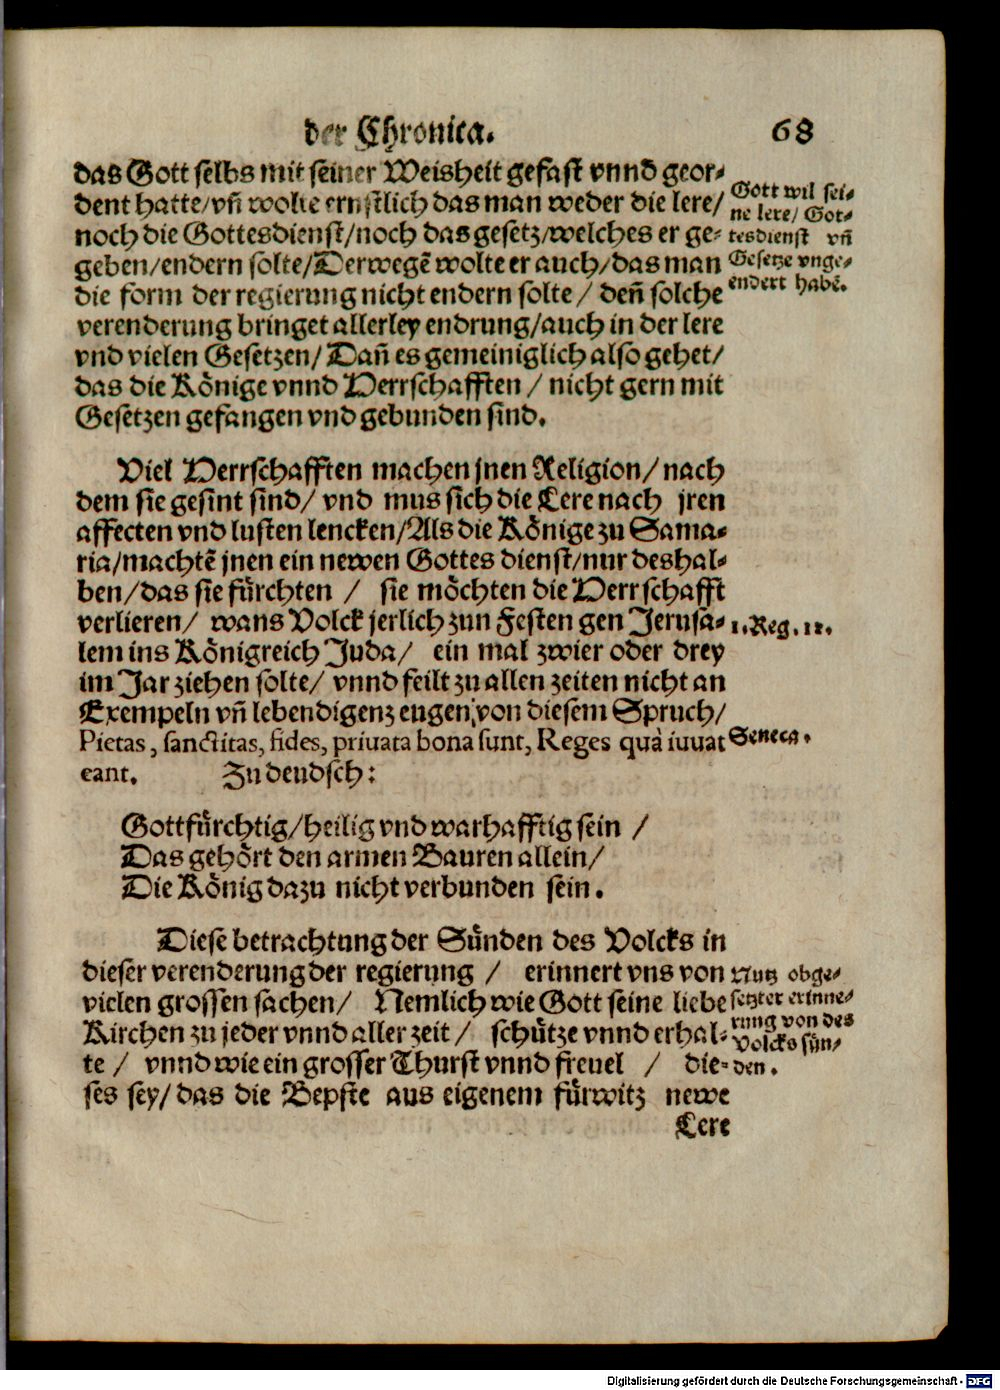 der Chronica. 68
das Gott selbs mit seiner Weisheit gefast vnnd geor⸗
dent hatte/vn̄ wolte ernstlich das man weder die lere/
noch die Gottesdienst/noch das gesetz/welches er ge⸗
geben/endern solte/Derwegē wolte er auch/das man
die form der regierung nicht endern solte/ den̄ solche
verenderung bringet allerley endrung/auch in der lere
vnd vielen Gesetzen/Dan̄ es gemeiniglich also gehet/
das die Könige vnnd Herrschafften/ nicht gern mit
Gesetzen gefangen vnd gebunden sind.
Gott wil sei⸗
ne lere/ Got⸗
tesdienst vn̄
Gesetze vnge⸗
endert habē.
Viel Herrschafften machen jnen Religion/nach
dem sie gesint sind/ vnd mus sich die Lere nach jren
affecten vnd lusten lencken/Als die Könige zu Sama⸗
ria/machtē jnen ein newen Gottes dienst/nur deshal⸗
ben/das sie fürchten / sie möchten die Herrschafft
verlieren/ wans Volck jerlich zun Festen gen Jerusa⸗
lem ins Königreich Juda/ ein mal zwier oder drey
im Jar ziehen solte/ vnnd feilt zu allen zeiten nicht an
Exempeln vn̄ lebendigenz eugen/von diesem Spruch/
Pietas, sanctitas, fides, priuata bona sunt, Reges quà iuuat
eant. Zu deudsch:
1.Reg.12.
Seneca.
Gottfürchtig/heilig vnd warhafftig sein /
Das gehört den armen Bauren allein/
Die König dazu nicht verbunden sein.
Diese betrachtung der Sünden des Volcks in
dieser verenderung der regierung / erinnert vns von
vielen grossen sachen/ Nemlich wie Gott seine liebe
Kirchen zu jeder vnnd aller zeit/ schütze vnnd erhal⸗
te / vnnd wie ein grosser Thurst vnnd freuel / die⸗
ses sey/das die Bepste aus eigenem fürwitz newe
Lere
Nutz obge⸗
setzter erinne⸗
rung von des
Volcks sün⸗
den.
Digitalisierung gefördert durch die Deutsche Forschungsgemeinschaft - DFG